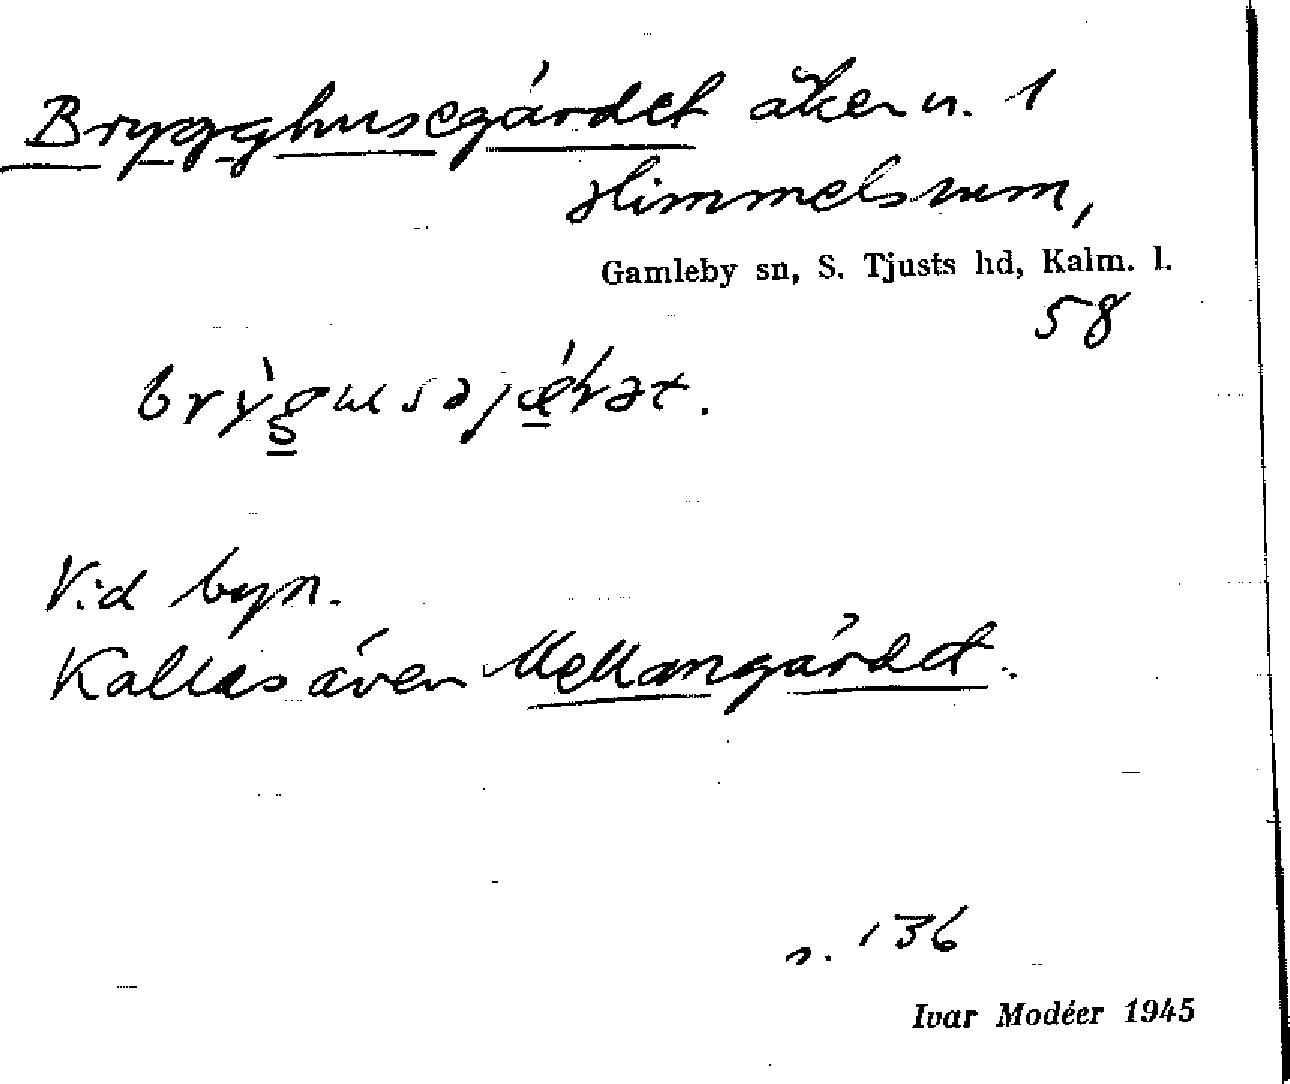 Brygghusegärdet åker u. 1
Himmelsrum,
Gamleby sn, S. Tjusts hd, Kalm. l.
58
Vid byn.
Kallas även Mellangärdet.
s. 136
Ivar Modéer 1945